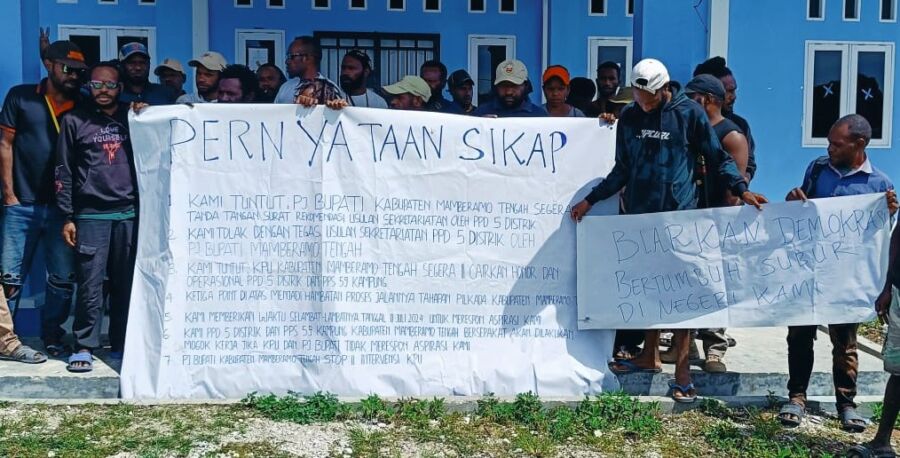 PERNYATAAN SIKAP
1. KAMI TUNTUT. PJ BUPATI KABUPATEN MAMBERAMO TENGAH SEGERA
TANDA TANGAN SURAT REKOMENDASI USULAN SEKRETARIATAN OLEH PPD 5 DISTRIK
2. KAMI TOLAK DENGAN TEGAS USULAN SEKRETARIATAN PPD 5 DISTRIK OLEH
PJ BUPATI MAMBERAMO TENGAH
3. KAMI TUNTUT KPU KABUPATEN MAMBERAMO TENGAH SEGERA CAIRKAN HONOR DAN
OPERASIONAL PPD 5 DISTRIK DAN PPS 59 KAMPUNG
4 KETIGA POINT DI ATAS MENJADI HAMBATAN PROSES JALANNYA TAHAPAN PILKADA KABUPATEN MAMBERAMO T
5 KAMI MEMBERIKAN WAKTU SELAMBAT-LAMBATNYA JULI 2024 UNTUK MERESPON ASPIRASI KAMI
6 KAMI PPD 5 DISTRIK DAN PPS 59 KAMPUNG KABUPATEN MAMBERAMO TENGAH BERSEPAKAT AKAN DILAKUKAN
MOGOK KERJA JIKA KPU DAN PJ BUPATI TIDAK MERESPON ASPIRASI KAMI
7 PJ BUPATI KABUPATEN MAMBERAMO TENGAH STOP INTERVENSI KPU
BIARKAN DEMOKRASI
BERTUMBUH SUBUR
DI NEGERI KAMI
LOVE
YOURSELF
RIP CURL